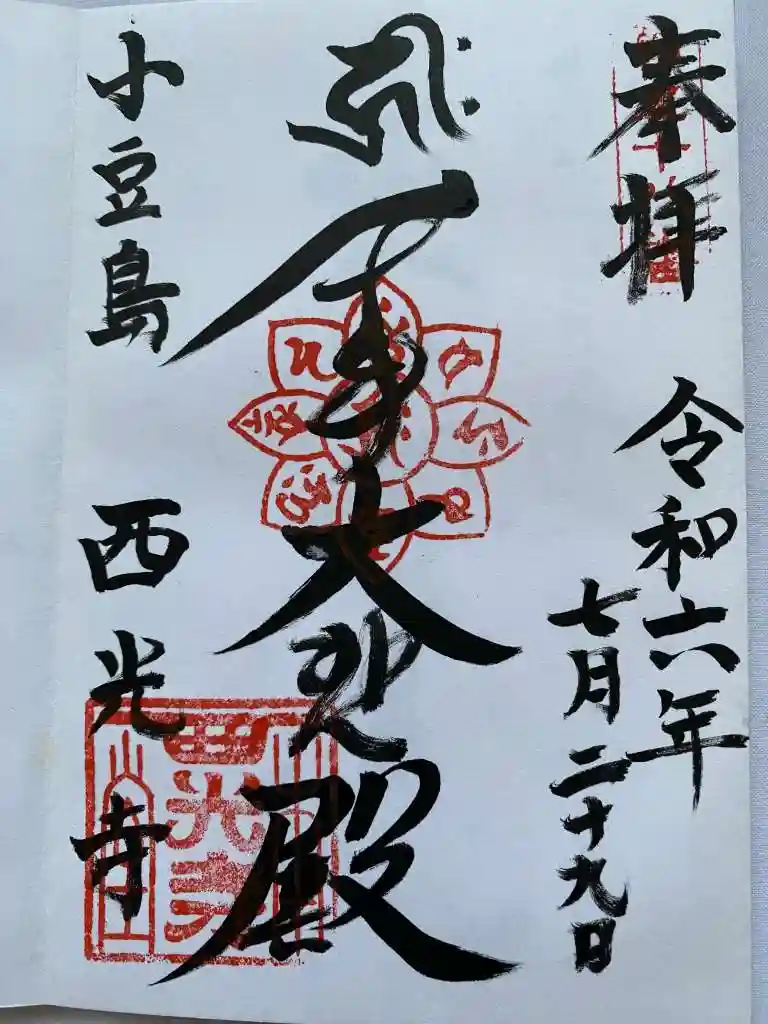 奉拝
令和六年
七月二十九日
千手大悲殿
小豆島
西光寺
西光寺